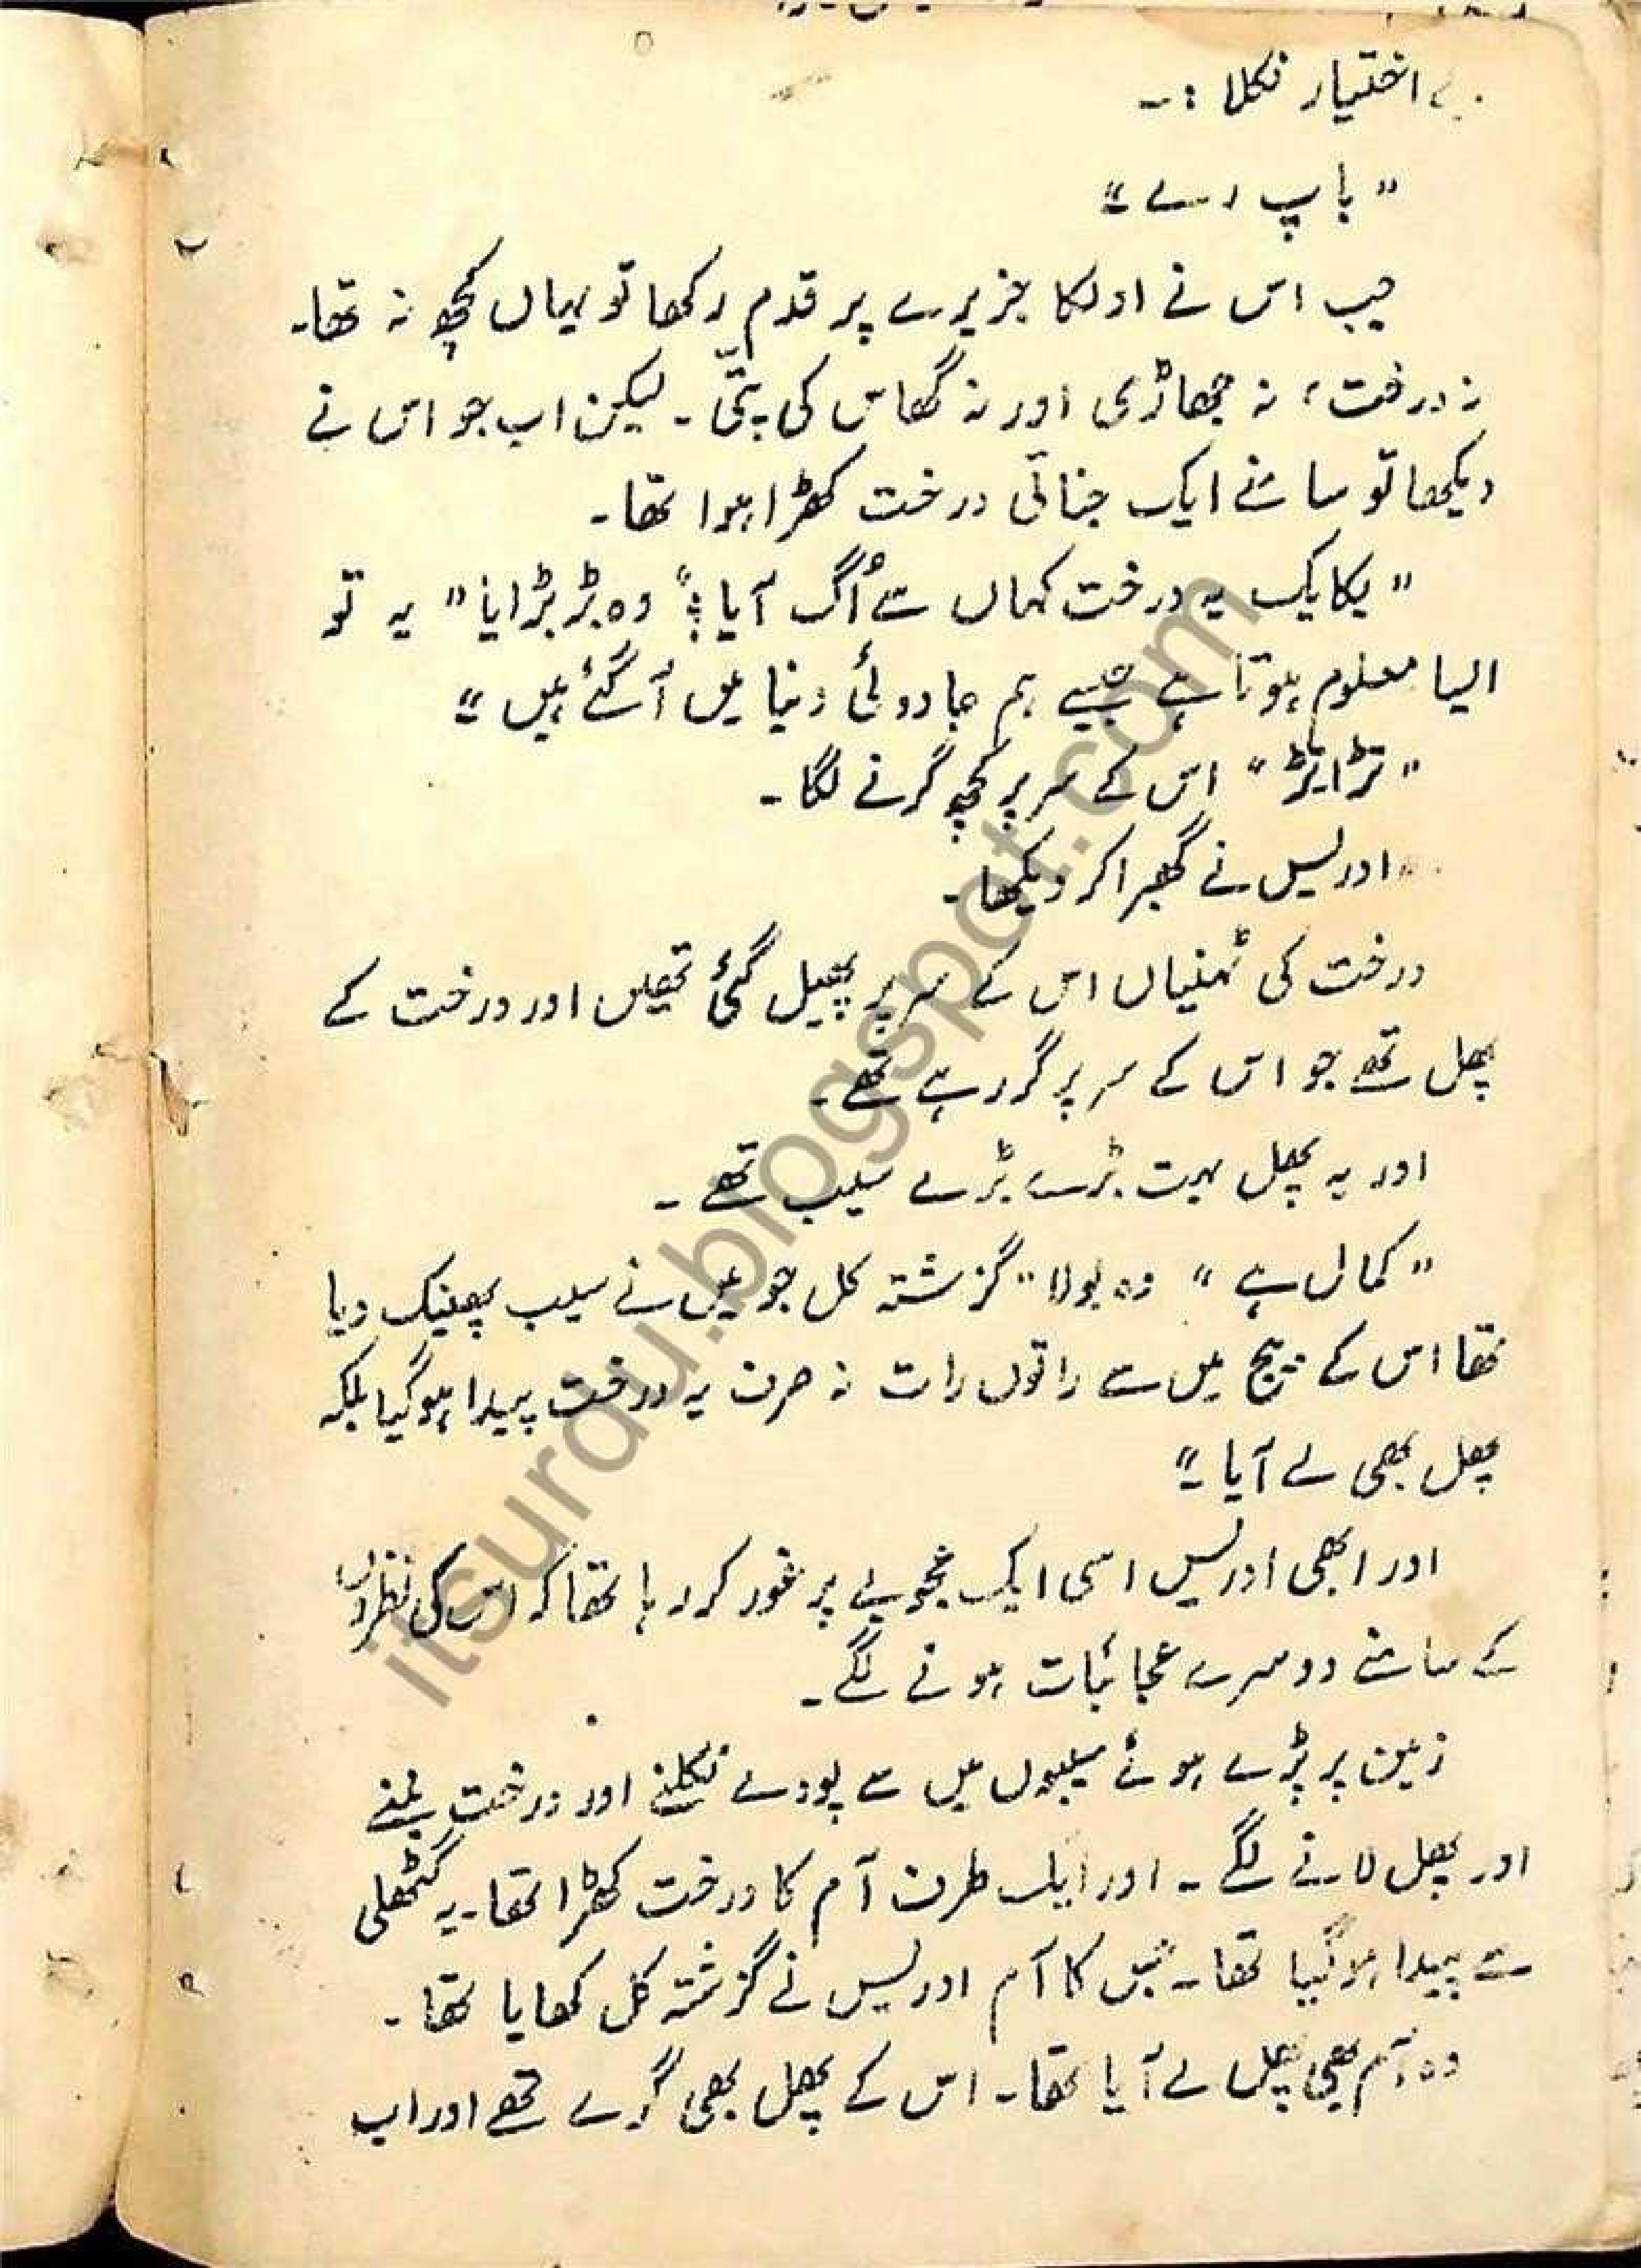 بے اختیار نکلا :۔
"باپ رے"
جب اس نے اولکا جزیرے پر قدم رکھا تو یہاں کچھ نہ تھا۔
نہ درخت، نہ جھاڑی اور نہ گھاس کی پتّی۔ لیکن اب جو اس نے
دیکھا تو سامنے ایک جناتی درخت کھڑا ہوا تھا۔
"یکایک یہ درخت کہاں سے اُگ آیا؟" وہ بڑبڑایا "یہ تو
ایسا معلوم ہوتا ہے جیسے ہم جادوئی دنیا میں آ گئے ہیں"
"تڑاتڑ" اس کے سر پر کچھ گرنے لگا۔
ادریس نے گھبرا کر دیکھا۔
درخت کی ٹہنیاں اس کے سر پر پھیل گئی تھیں اور درخت کے
پھل تھے جو اس کے سر پر گر رہے تھے۔
اور یہ پھل بہت بڑے بڑے سیب تھے۔
"کمال ہے" وہ بولا "گزشتہ کل جو میں نے سیب پھینک دیا
تھا اس کے بیج میں سے راتوں رات نہ صرف یہ درخت پیدا ہو گیا بلکہ
پھل بھی لے آیا۔"
اور ابھی ادریس اسی ایک عجوبے پر غور کر رہا تھا کہ اس کی نظروں
کے سامنے دوسرے عجائبات ہونے لگے۔
زمین پر پڑے ہوئے سیبوں میں سے پودے نکلنے اور درخت بننے
اور پھل لانے لگے۔ اور ایک طرف آم کا درخت کھڑا تھا۔ یہ گٹھلی
سے پیدا ہو گیا تھا۔ جس کا آم ادریس نے گزشتہ کل کھایا تھا۔
وہ آم بھی پھل لے آیا تھا۔ اس کے پھل بھی گرے تھے اور اب
itsurdu.blogspot.com